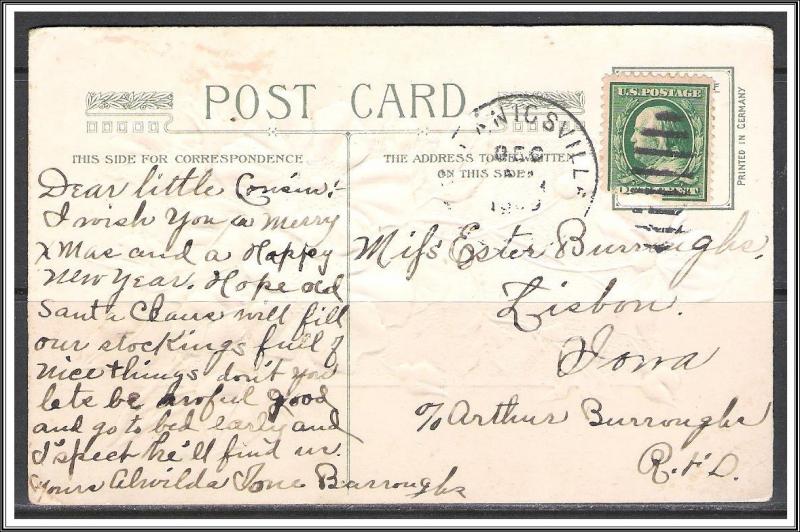 POST CARD
THIS SIDE FOR CORRESPONDENCE
THE ADDRESS TO BE WRITTEN
ON THIS SIDE
PRINTED IN GERMANY
U.S. POSTAGE
NICSVILLE
DEC
Dear little Cousin:-
I wish You a merry
xMas and a Happy
New Year. Hope old
Santa Claus will fill
our stockings full of
nice things don't you
lets be awful good
and go to bed early and
I 'spect he'll find us.
Yours Alwilda Ione Burroughs
Miss Ester Burroughs.
Lisbon.
Iowa
c/o Arthur Burroughs
R.F.D.